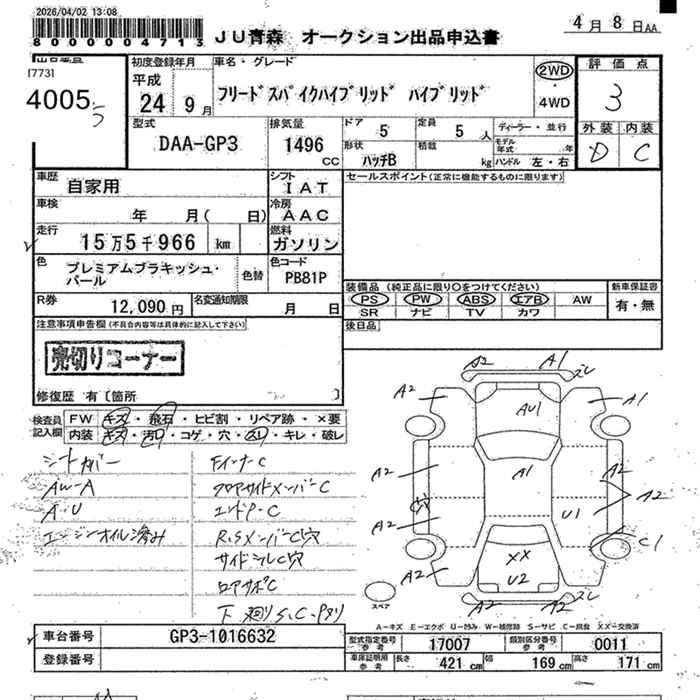 2026/04/02 13:08
8000004713
JU青森 オークション出品申込書
4月8日AA
[773]
4005
5
初度登録年月
平成
24 9月
車名・グレード
フリードスパイクハイブリッド ハイブリッド
2WD
・
4WD
評価点
3
型式
DAA-GP3
排気量
1496
CC
ドア 5
定員 5人
ディーラー・並行
形状 ハッチB
積載 kg
モデル年式 年
ハンドル 左・右
外装 内装
D C
車歴 自家用
シフト IAT
セールスポイント(正常に機能するものに限ります)
車検 年 月( 日)
冷房 AAC
走行 15万5千966 km
燃料 ガソリン
色 プレミアムブラキッシュ・パール
色替
色コード PB81P
装備品 (純正品に限り〇をつけてください)
新車保証書
PS PW ABS エアB AW
有・無
SR ナビ TV カワ
R券 12,090円
名変通知期限 月 日
後日品
注意事項申告欄(不具合内容等は具体的に記入して下さい)
売切りコーナー
修復歴 有〔箇所 〕
検査員記入欄
FW キズ・飛石・ヒビ割・リペア跡・×要
内装 キズ・汚れ・コゲ・穴・スレ・キレ・破レ
シートカバー
AW-A
A・U
エンジンオイル滲み
FインナーC
フロアサイドメンバーC
エンドP・C
R.SメンバーC穴
サイドシルC穴
ロアサポC
下廻りS.C.Pサリ
A2 A1
A2 A1
AU1
A1
A2 A2
A2
穴
U1
A2
C1
XX
U2
A2
A2
スペア
A-キズ E-エクボ U-凹み W-補修跡 S-サビ C-腐食 XX-交換済
車台番号 GP3-1016632
登録番号
型式指定番号 参考 17007
類別区分番号 参考 0011
車庫証明用 参考
長さ 421cm 幅 169cm 高さ 171cm